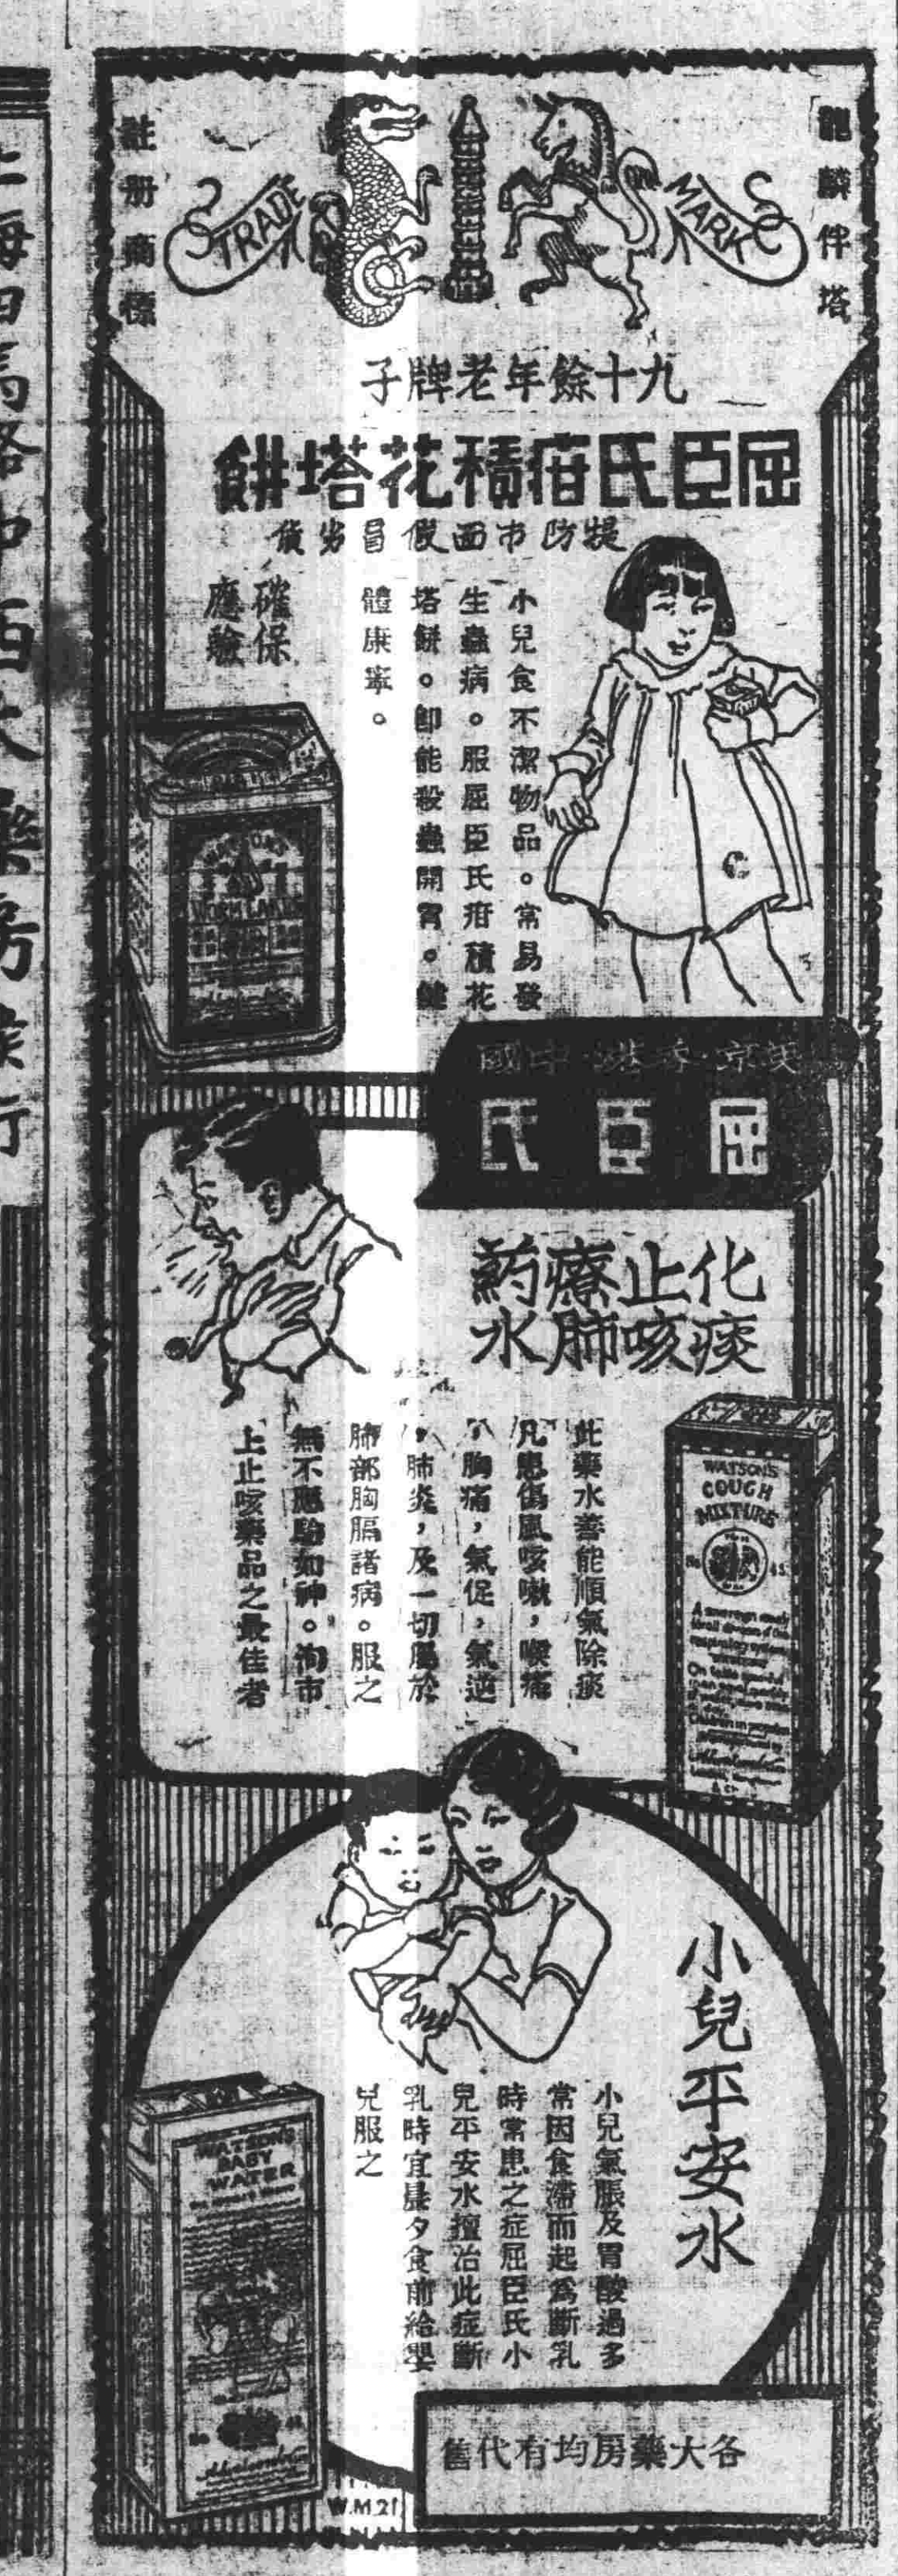 龍麟伴塔
註册商標
TRADE MARK
九十餘年老牌子
屈臣氏疳積花塔餅
提防市面假冒劣貨
確保
應驗
小兒食不潔物品。常易發
生蟲病。服屈臣氏疳積花
塔餅。卽能殺蟲開胃。健
體康寧。
WATSON'S
WORM CAKES
英京·香港·中國
屈臣氏
化痰
止咳
療肺
葯水
此藥水善能順氣除痰
凡患傷風咳嗽，喉痛
，胸痛，氣促，氣逆
，肺炎，及一切屬於
肺部胸膈諸病。服之
無不應驗如神。洵市
上止咳藥品之最佳者
WATSON'S
COUGH
MIXTURE
小兒平安水
小兒氣脹及胃酸過多
常因食滯而起爲斷乳
時常患之症屈臣氏小
兒平安水擅治此症斷
乳時宜晨夕食前給嬰
兒服之
WATSON'S
BABY
WATER
各大藥房均有代售
W.M.21